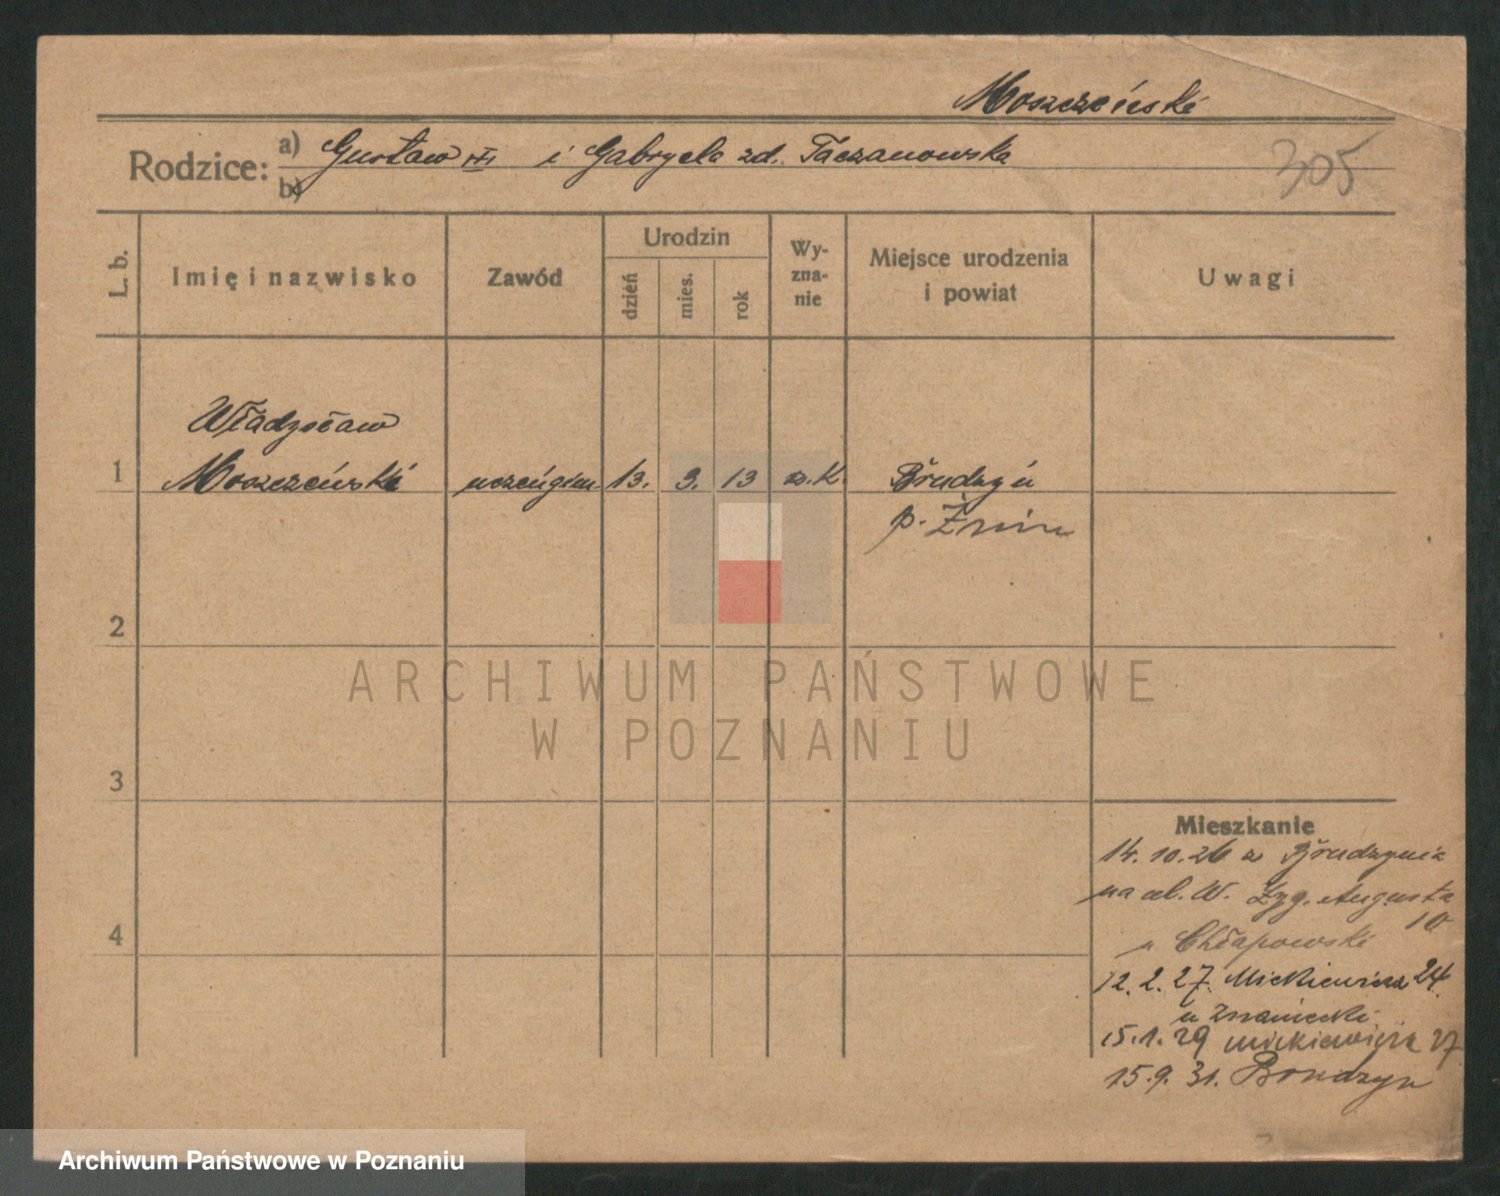 Moszczeński
305
Rodzice: a) Gustaw i Gabryela zd. Taczanowska
b)
L. b.
Imię i nazwisko
Zawód
Urodzin
dzień
mies.
rok
Wy-
zna-
nie
Miejsce urodzenia
i powiat
Uwagi
Władysław
1 Moszczeński uczeń gim 13. 3. 13 rz. K. Brudzyń
p. Żnin
2
ARCHIWUM PAŃSTWOWE
W POZNANIU
3
4
Mieszkanie
14. 10. 26 z Brudzynia
na ul. W. Zyg. Augusta
10
u Chłapowski
12. 2. 27. Mickiewicza 24.
u Znaniecki
15. 1. 29 Mickiewicza 27
15. 9. 31. Brudzyn
Archiwum Państwowe w Poznaniu